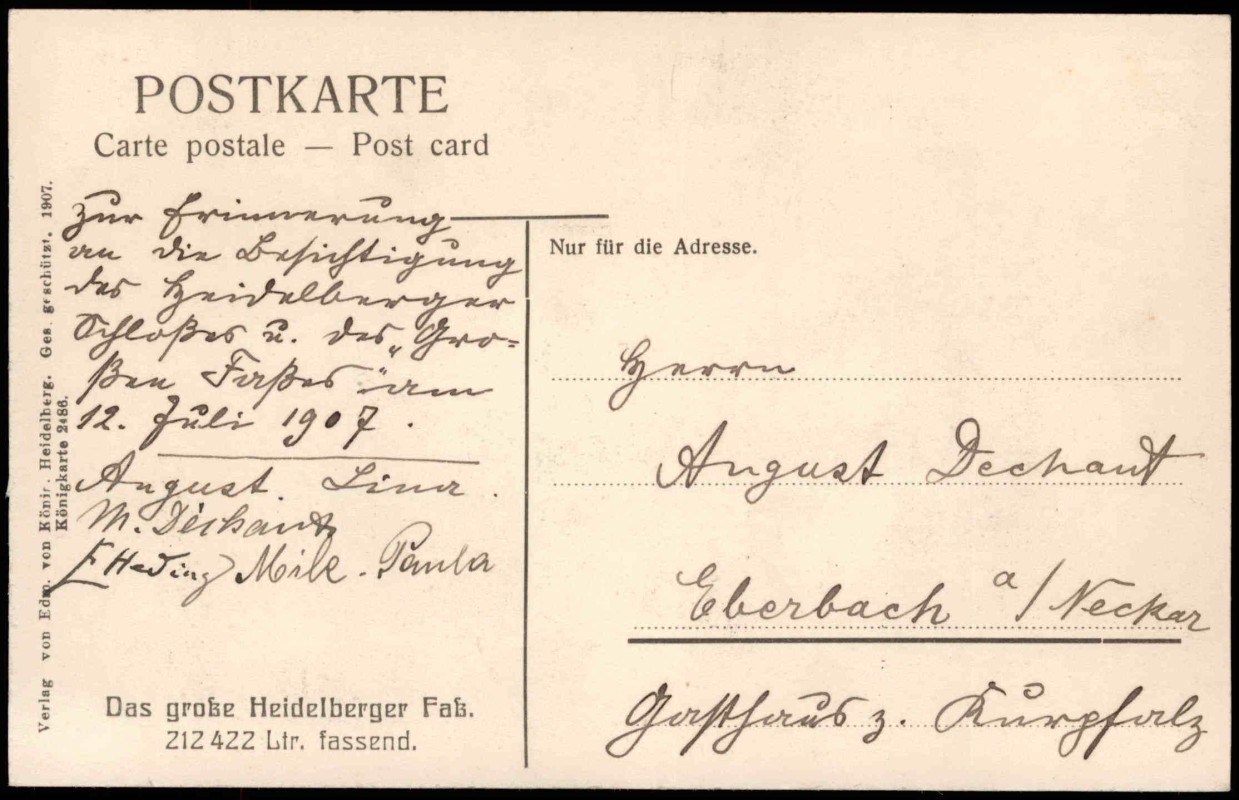 POSTKARTE
Carte postale — Post card
Zur Erinnerung
an die Besichtigung
des Heidelberger
Schloßes u. des „Gro=
ßen Faßes" am
12. Juli 1907.
August. Lina.
M. Dechant
Mile. Paula
Das große Heidelberger Faß.
212 422 Ltr. fassend.
Verlag von Edm. von König, Heidelberg. Ges. geschützt. 1907.
Königkarte 2486.
Nur für die Adresse.
Herrn
August Dechant
Eberbach a/Neckar
Gasthaus z. Kurpfalz